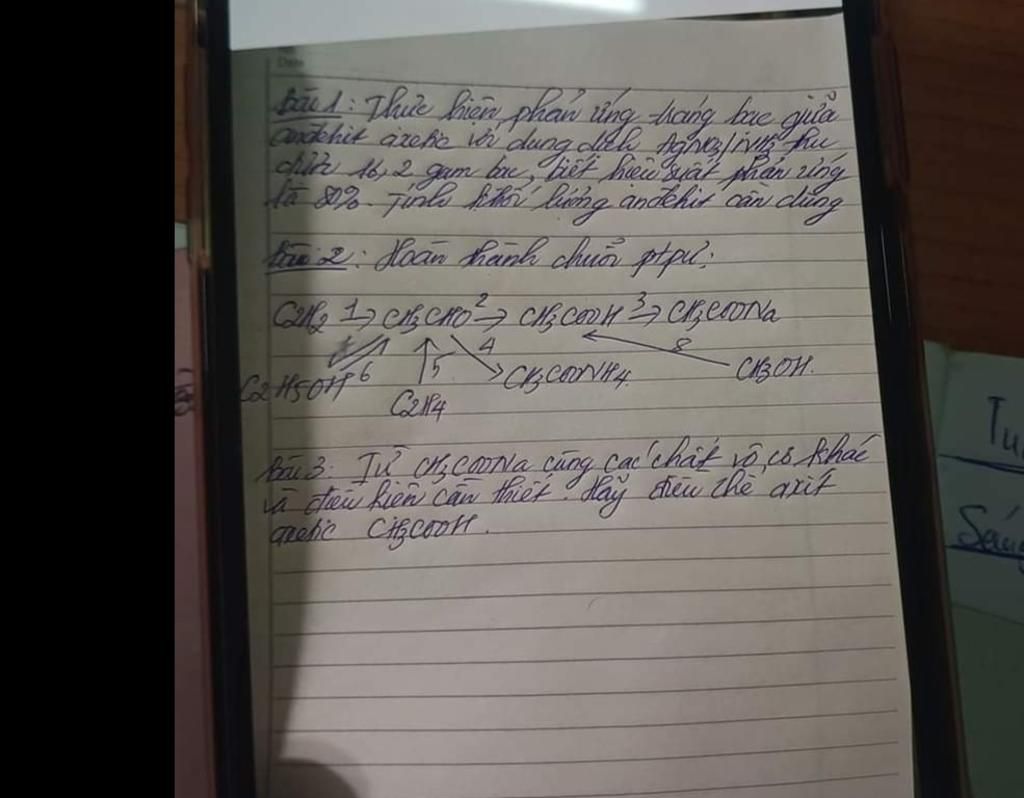 Date
Bài 1: Thực hiện phản ứng tráng bạc giữa
anđehit axetic với dung dịch AgNO3/NH3 thu
được 16,2 gam bạc, biết hiệu suất phản ứng
là 80%. Tính khối lượng anđehit cần dùng
Bài 2: Hoàn thành chuỗi ptpư:
C2H2 1→ CH3CHO 2→ CH3COOH 3→ CH3COONa
C2H5OH 6 5 4 CH3COONH4 8 CH3OH.
C2H4
Bài 3: Từ CH3COONa cùng các chất vô cơ khác
và điều kiện cần thiết. Hãy điều chế axit
axetic CH3COOH.
Sáng